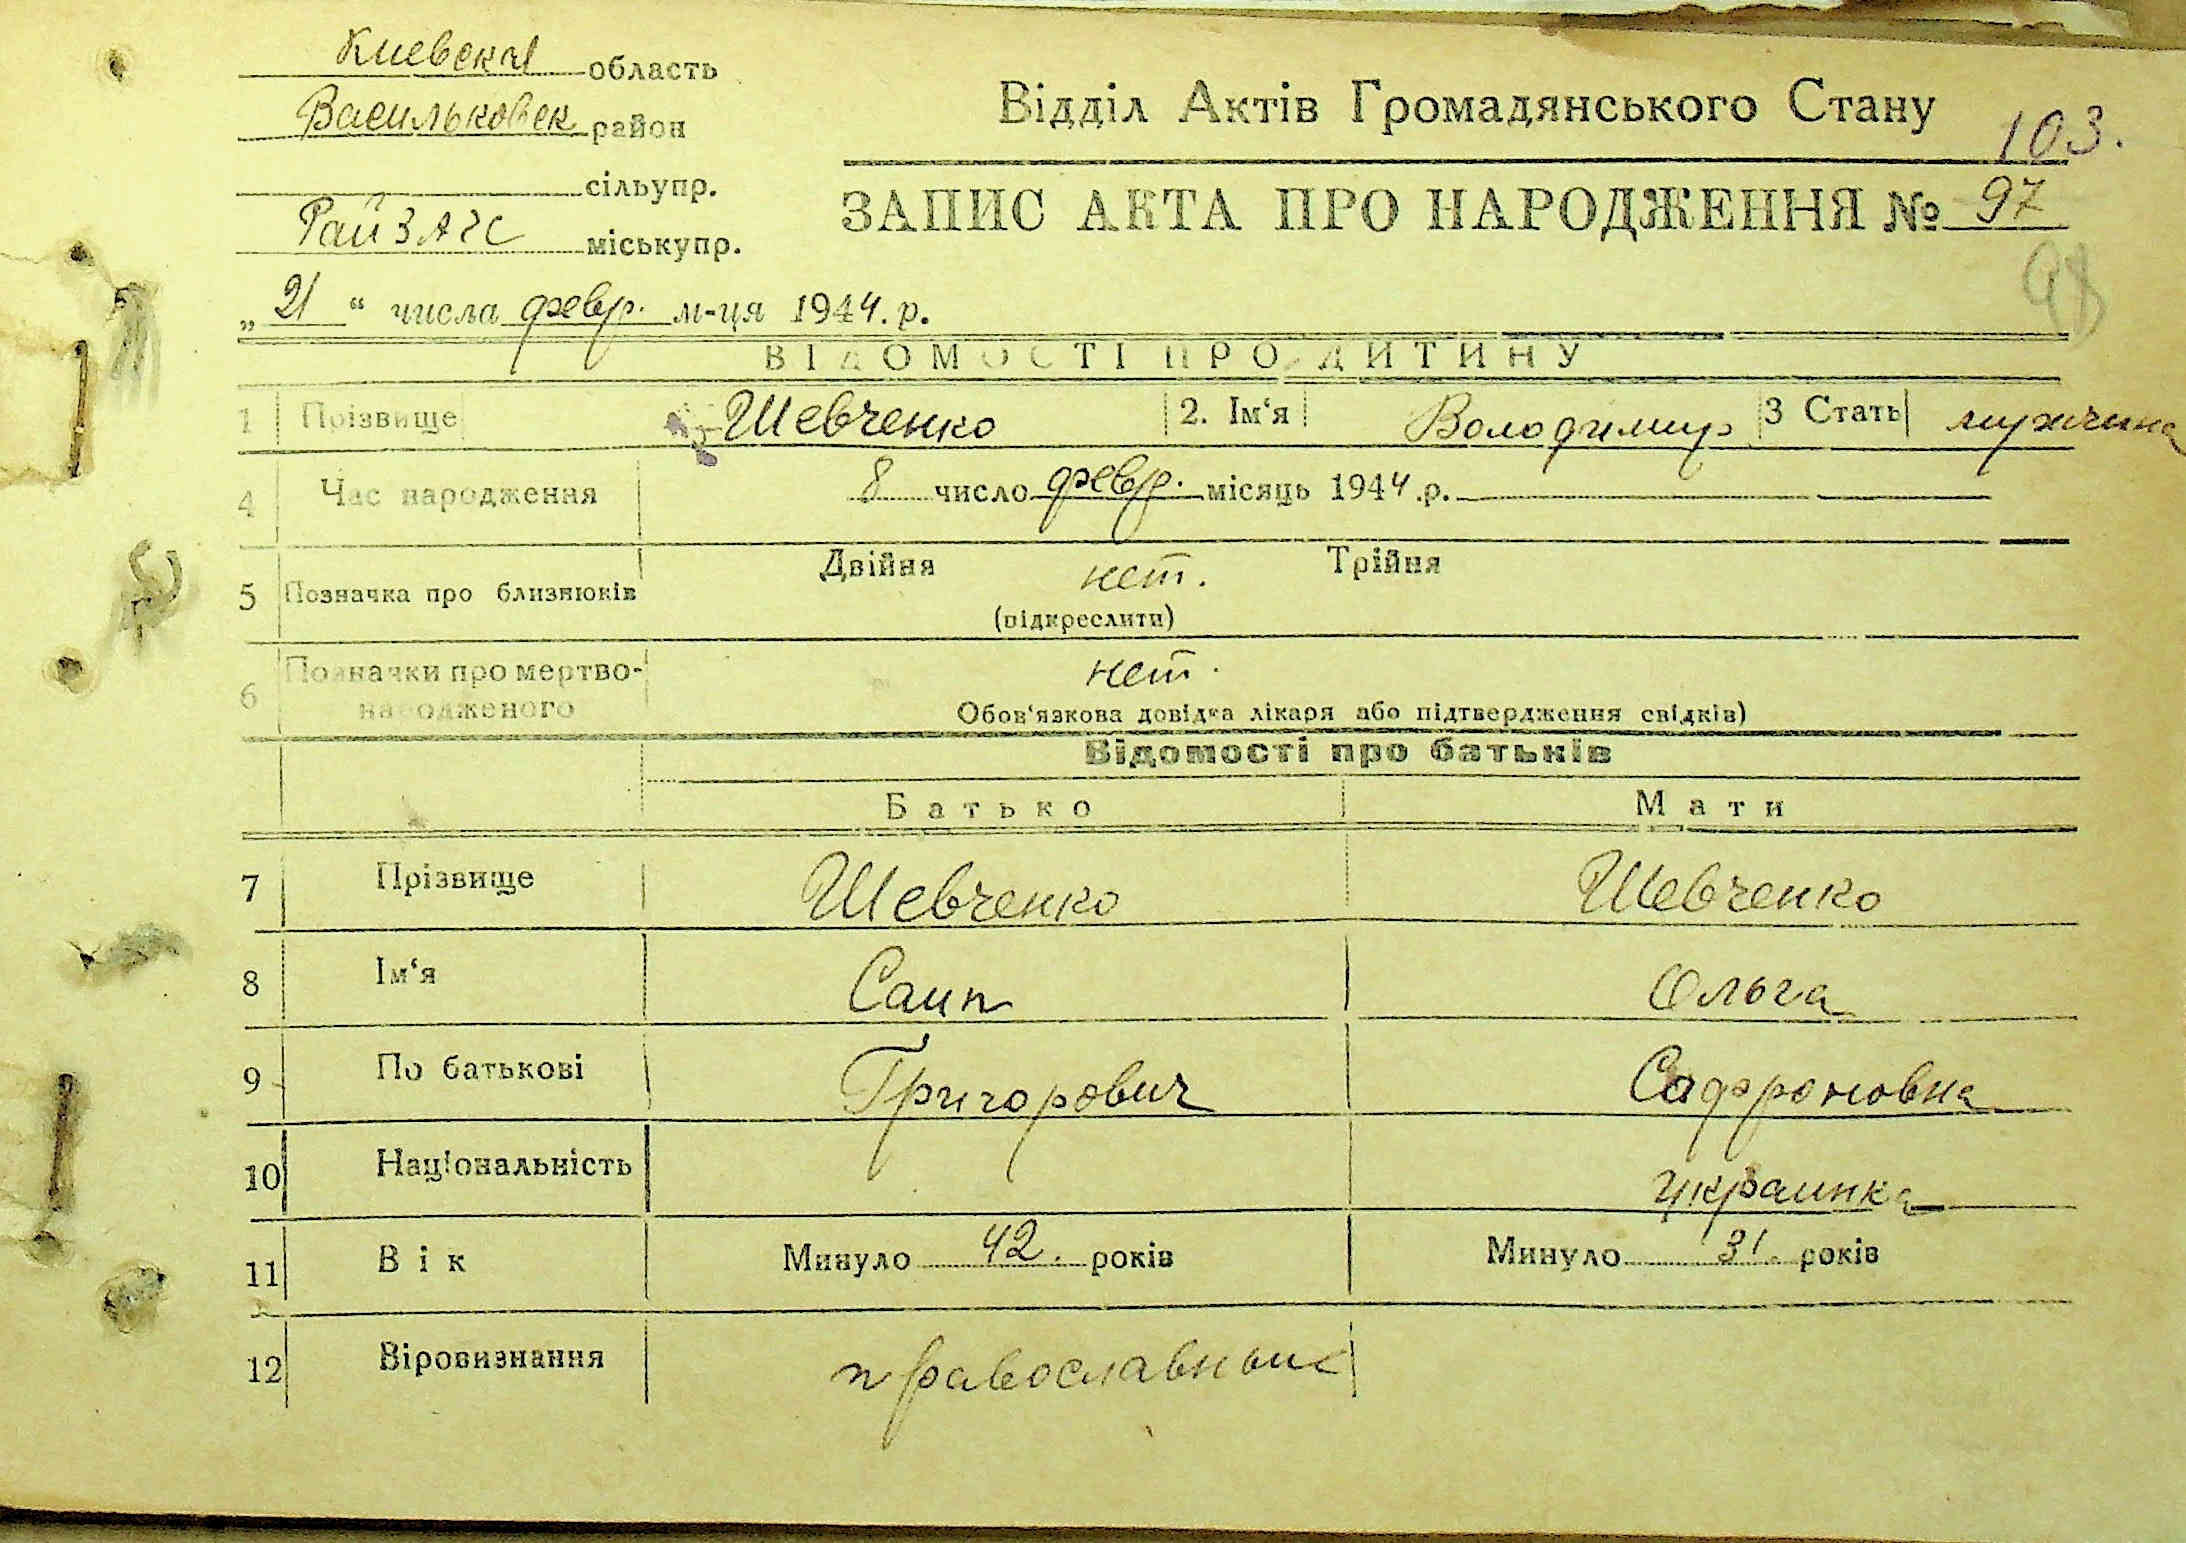 Киевская область
Васильковск район
сільупр.
РайЗАГС міськупр.
Відділ Актів Громадянського Стану
103.
ЗАПИС АКТА ПРО НАРОДЖЕННЯ № 97
98
„21“ числа февр. м-ця 1944. р.
ВІДОМОСТІ ПРО ДИТИНУ
1 Прізвище Шевченко 2. Ім‘я Володимир 3 Стать мужчина
4 Час народження 8 число февр. місяць 1944 .р.
Двійня нет. Трійня
5 Позначка про близнюків
(підкреслити)
6 Позначки про мертво-
народженого
нет.
Обов‘язкова довідка лікаря або підтвердження свідків)
Відомості про батьків
Батько Мати
7 Прізвище Шевченко Шевченко
8 Ім‘я Саип Ольга
9 По батькові Григорович Сафроновна
10 Національність украинка
11 Вік Минуло 42. років Минуло 31. років
12 Віровизнання православные